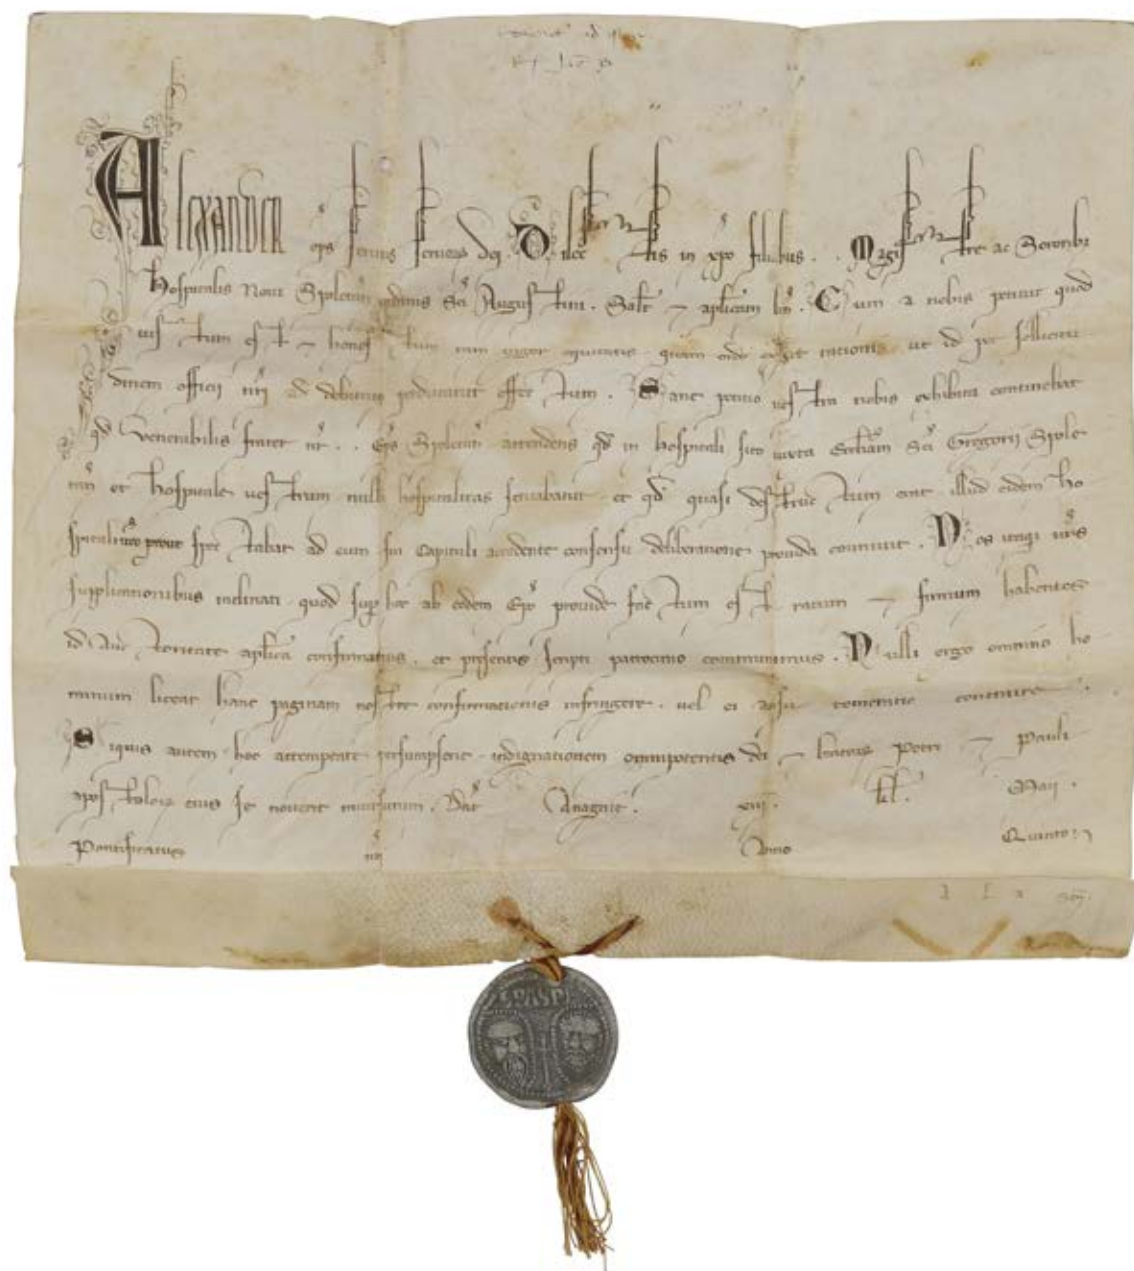 Alexander ep̄s seruus seruoꝝ dei. Dilectis in xp̄o filiabus .. Magistre ac Sororibꝫ
Hospitalis Noui Spoletan̄ ordinis Sc̄i Augustini. Salt̄ ⁊ aplicam ben̄. Cum a nobis petitur quod
iustum est ⁊ honestum tam uigor equitatis quam ordo exigit rationis ut id per sollicitu
dinem officii nr̄i ad debitum perducatur effectum. Sane petitio uestra nobis exhibita continebat
qd̄ Venerabilis frater nr̄ .. Ep̄s Spoletan̄ attendens qd̄ in hospitali sito iuxta Eccl̄iam Sc̄i Gregorii Spole
tan̄ et hospitale uestrum nulla hospitalitas seruabatur et qd̄ quasi destructum erat illud eidem ho
spitali prout spectabat ad eum sui Capituli accedente consensu deliberatione prouida
. Nos itaqꝫ ur̄is
supplicationibus inclinati quod super hoc ab eodem Ep̄o prouide factum est ratum ⁊ firmum habentes
id auctoritate aplica confirmamus et presentis scripti patrocinio communimus. Nulli ergo omnino ho
minum liceat hanc paginam nostre confirmationis infringere uel ei ausu temerario contraire.
Siquis autem hoc attemptare presumpserit indignationem omnipotentis dei ⁊ beatoꝝ Petri ⁊ Pauli
apostoloꝝ eius se nouerit incursurum. Dat̄ Anagnie xiii kl̄. Maii.
Pontificatus nr̄i Anno Quinto
SPASPE